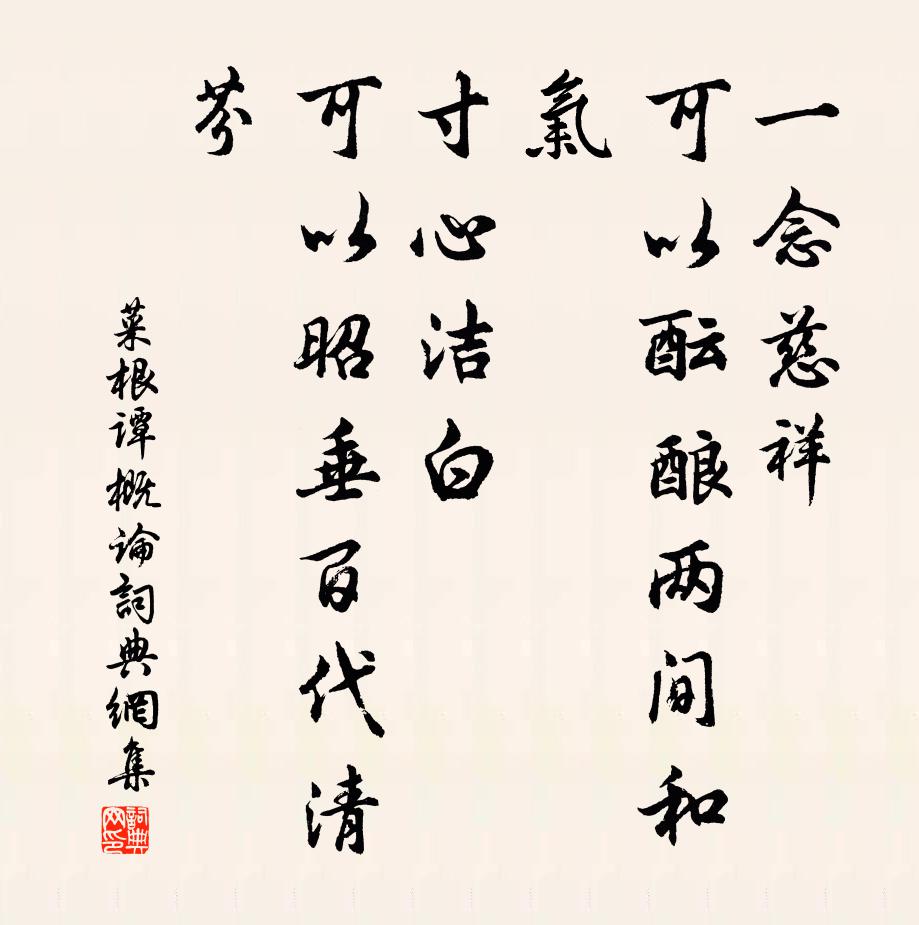 一念慈祥
可以酝酿两间和
氣
寸心洁白
可以昭垂百代清
芬
菜根谭概論詞典網集
詞典
网印